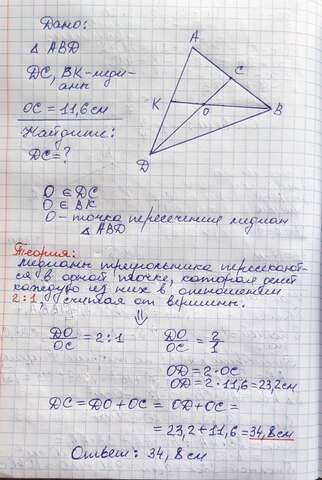 Дано:
△ ABD
DC, BK - меди-
аны
OC = 11,6 см
Найдите:
DC = ?
A
C
K
O
B
D
O ∈ DC
O ∈ BK
O - точка пересечения медиан
△ ABD
Теория:
медианы треугольника пересекают-
ся в одной точке, которая делит
каждую из них в отношении
2:1 считая от вершины.
⇓
DO/OC = 2:1 DO/OC = 2/1
OD = 2·OC
OD = 2·11,6 = 23,2 см
DC = DO + OC = OD + OC =
= 23,2 + 11,6 = 34,8 см
Ответ: 34,8 см